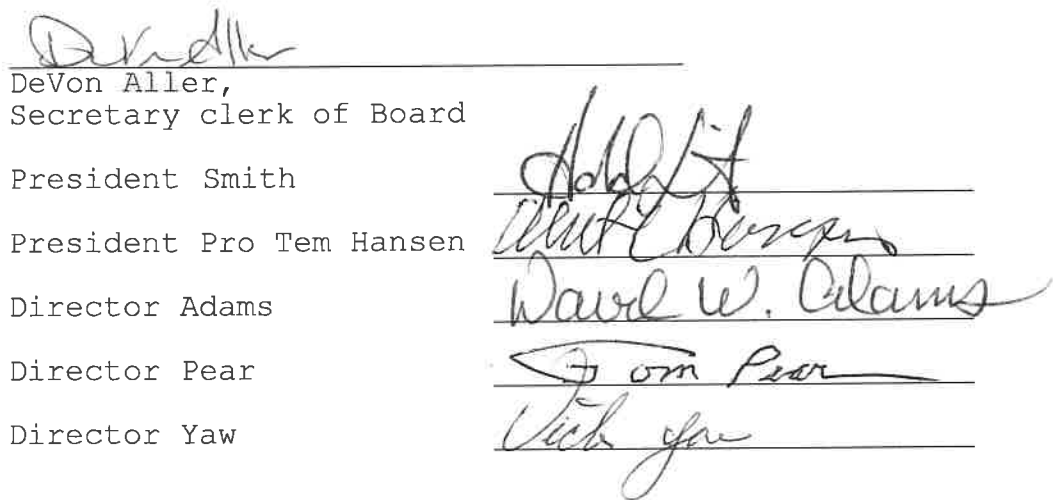 DeVon Aller
DeVon Aller,
Secretary clerk of Board
President Smith
President Pro Tem Hansen
Director Adams David W. Adams
Director Pear Tom Pear
Director Yaw Vick Yaw